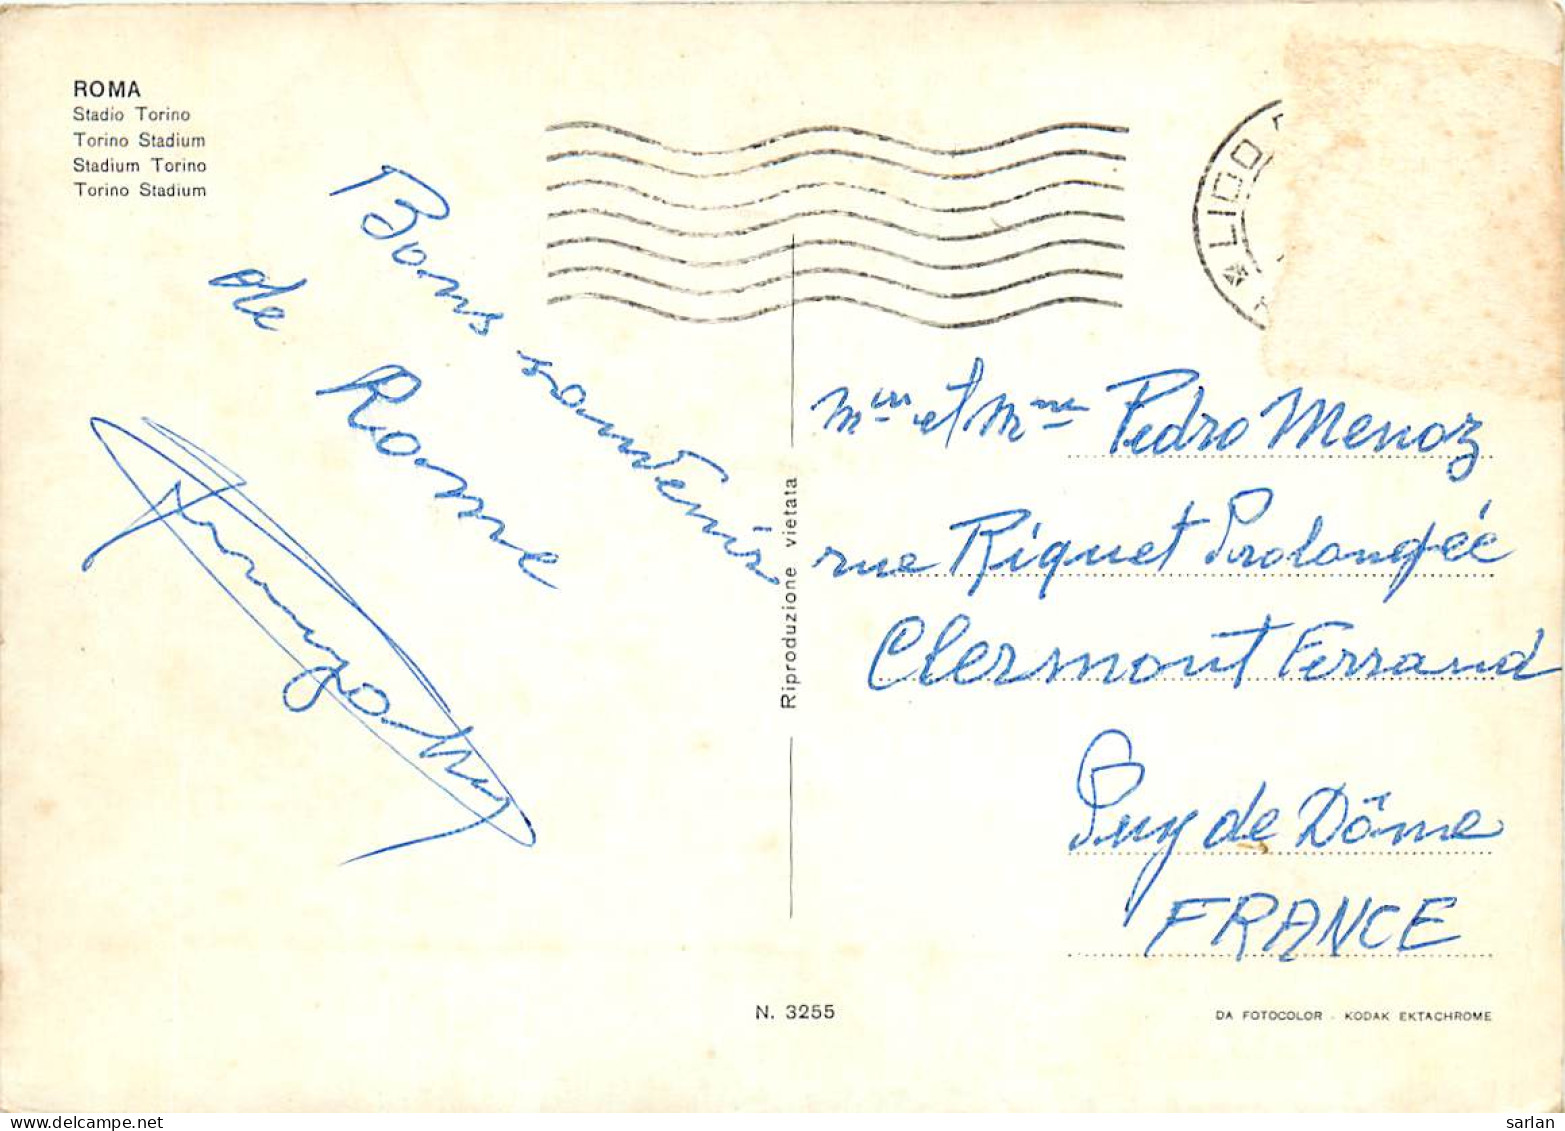 ROMA
Stadio Torino
Torino Stadium
Stadium Torino
Torino Stadium
LIDO
Bons souvenir
de Rome
Riproduzione vietata
Mr et Mme Pedro Menoz
rue Riquet Prolongée
Clermont Ferrand
Puy de Dôme
FRANCE
N. 3255
DA FOTOCOLOR - KODAK EKTACHROME
www.delcampe.net
sarlan